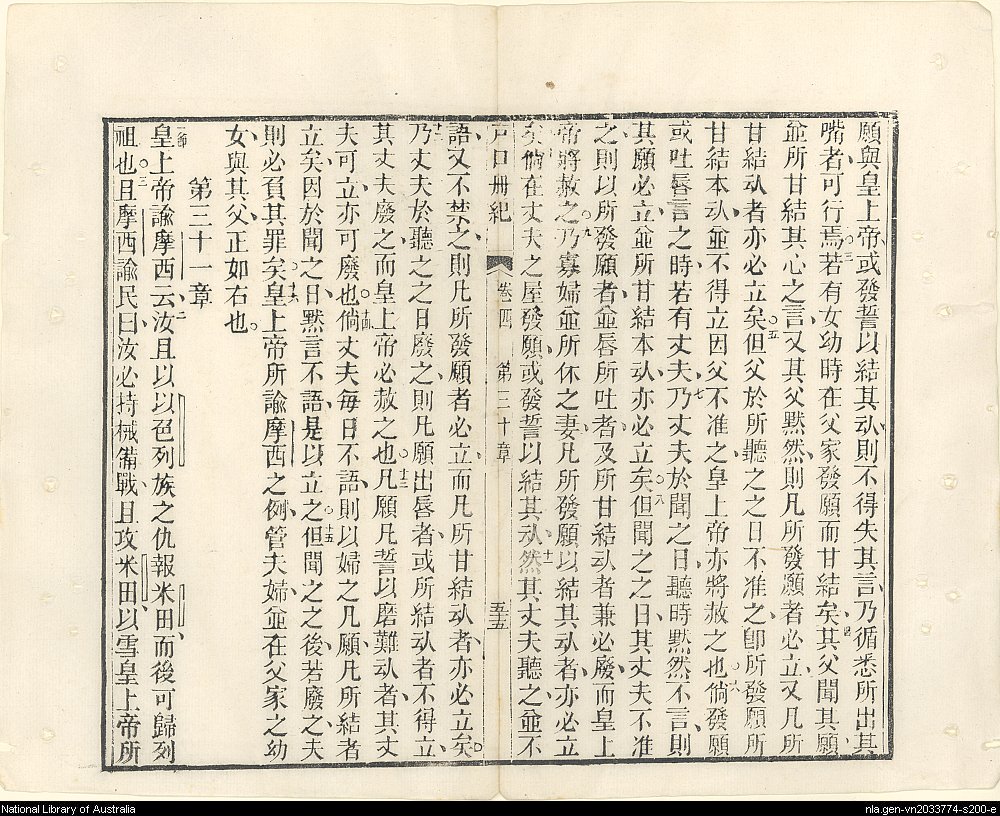 願與皇上帝或發誓以結其㪽則不得失其言乃循悉所出其
嘴者可行焉三若有女幼時在父家發願而甘結矣四其父聞其願
並所甘結其心之言又其父默然則凡所發願者必立又凡所
甘結㪽者亦必立矣五但父於所聽之之日不准之卽所發願所
甘結本㪽並不得立因父不准之皇上帝亦將赦之也六倘發願
或吐唇言之時七若有丈夫乃丈夫於聞之日聽時默然不言則
其願必立並所甘結本㪽亦必立矣八但聞之之日其丈夫不准
之則以所發願者並唇所吐者及所甘結㪽者兼必廢而皇上
帝將赦之九乃寡婦並所休之妻凡所發願以結其㪽者亦必立
矣倘在丈夫之屋發願或發誓以結其㪽十一然其丈夫聽之並不
戶口冊紀 卷四 第三十章 五十五
語又不禁之則凡所發願者必立而凡所甘結㪽者亦必立矣
十二乃丈夫於聽之之日廢之則凡願出唇者或所結㪽者不得立
其丈夫廢之而皇上帝必赦之也十三凡願凡誓以磨難㪽者其丈
夫可立亦可廢也十四倘丈夫每日不語則以婦之凡願凡所結者
立矣因於聞之日默言不語是以立之十五但聞之之後若廢之夫
則必負其罪矣十六皇上帝所諭摩西之例管夫婦並在父家之幼
女與其父正如右也
第三十一章
一節皇上帝諭摩西云二汝且以以色列族之仇報米田而後可歸列
祖也三且摩西諭民曰汝必持械備戰且攻米田以雪皇上帝所
National Library of Australia
nla.gen-vn2033774-s200-e